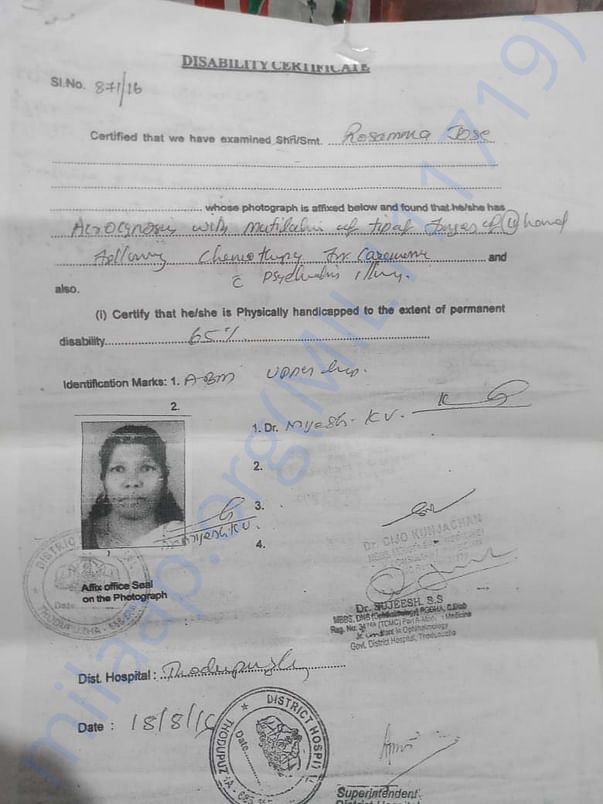 DISABILITY CERTIFICATE
Sl.No. 871/16
Certified that we have examined Shri/Smt. Rosamma Jose
whose photograph is affixed below and found that he/she has
with mutilation of tip of finger of hand
Following Chemotherapy for Carcinoma and
c illness.
also.
(i) Certify that he/she is Physically handicapped to the extent of permanent
disability 65%
Identification Marks: 1. A BM upper lip.
2.
1. Dr. Nijesh K V.
2.
3.
4.
Dr. Nijesh K V.
Dr. CIJO KUNJACHAN
Affix office Seal
on the Photograph
DISTRICT
Date
THODUPUZHA
Dr. SUJEESH. S.S
Reg. No.
Govt. District Hospital, Thodupuzha
Dist. Hospital : Thodupuzha
Date : 18/8/16
DISTRICT HOSPITAL
Date
THODUPUZHA
Superintendent
District Hospital
milaap.org(MIL111719)